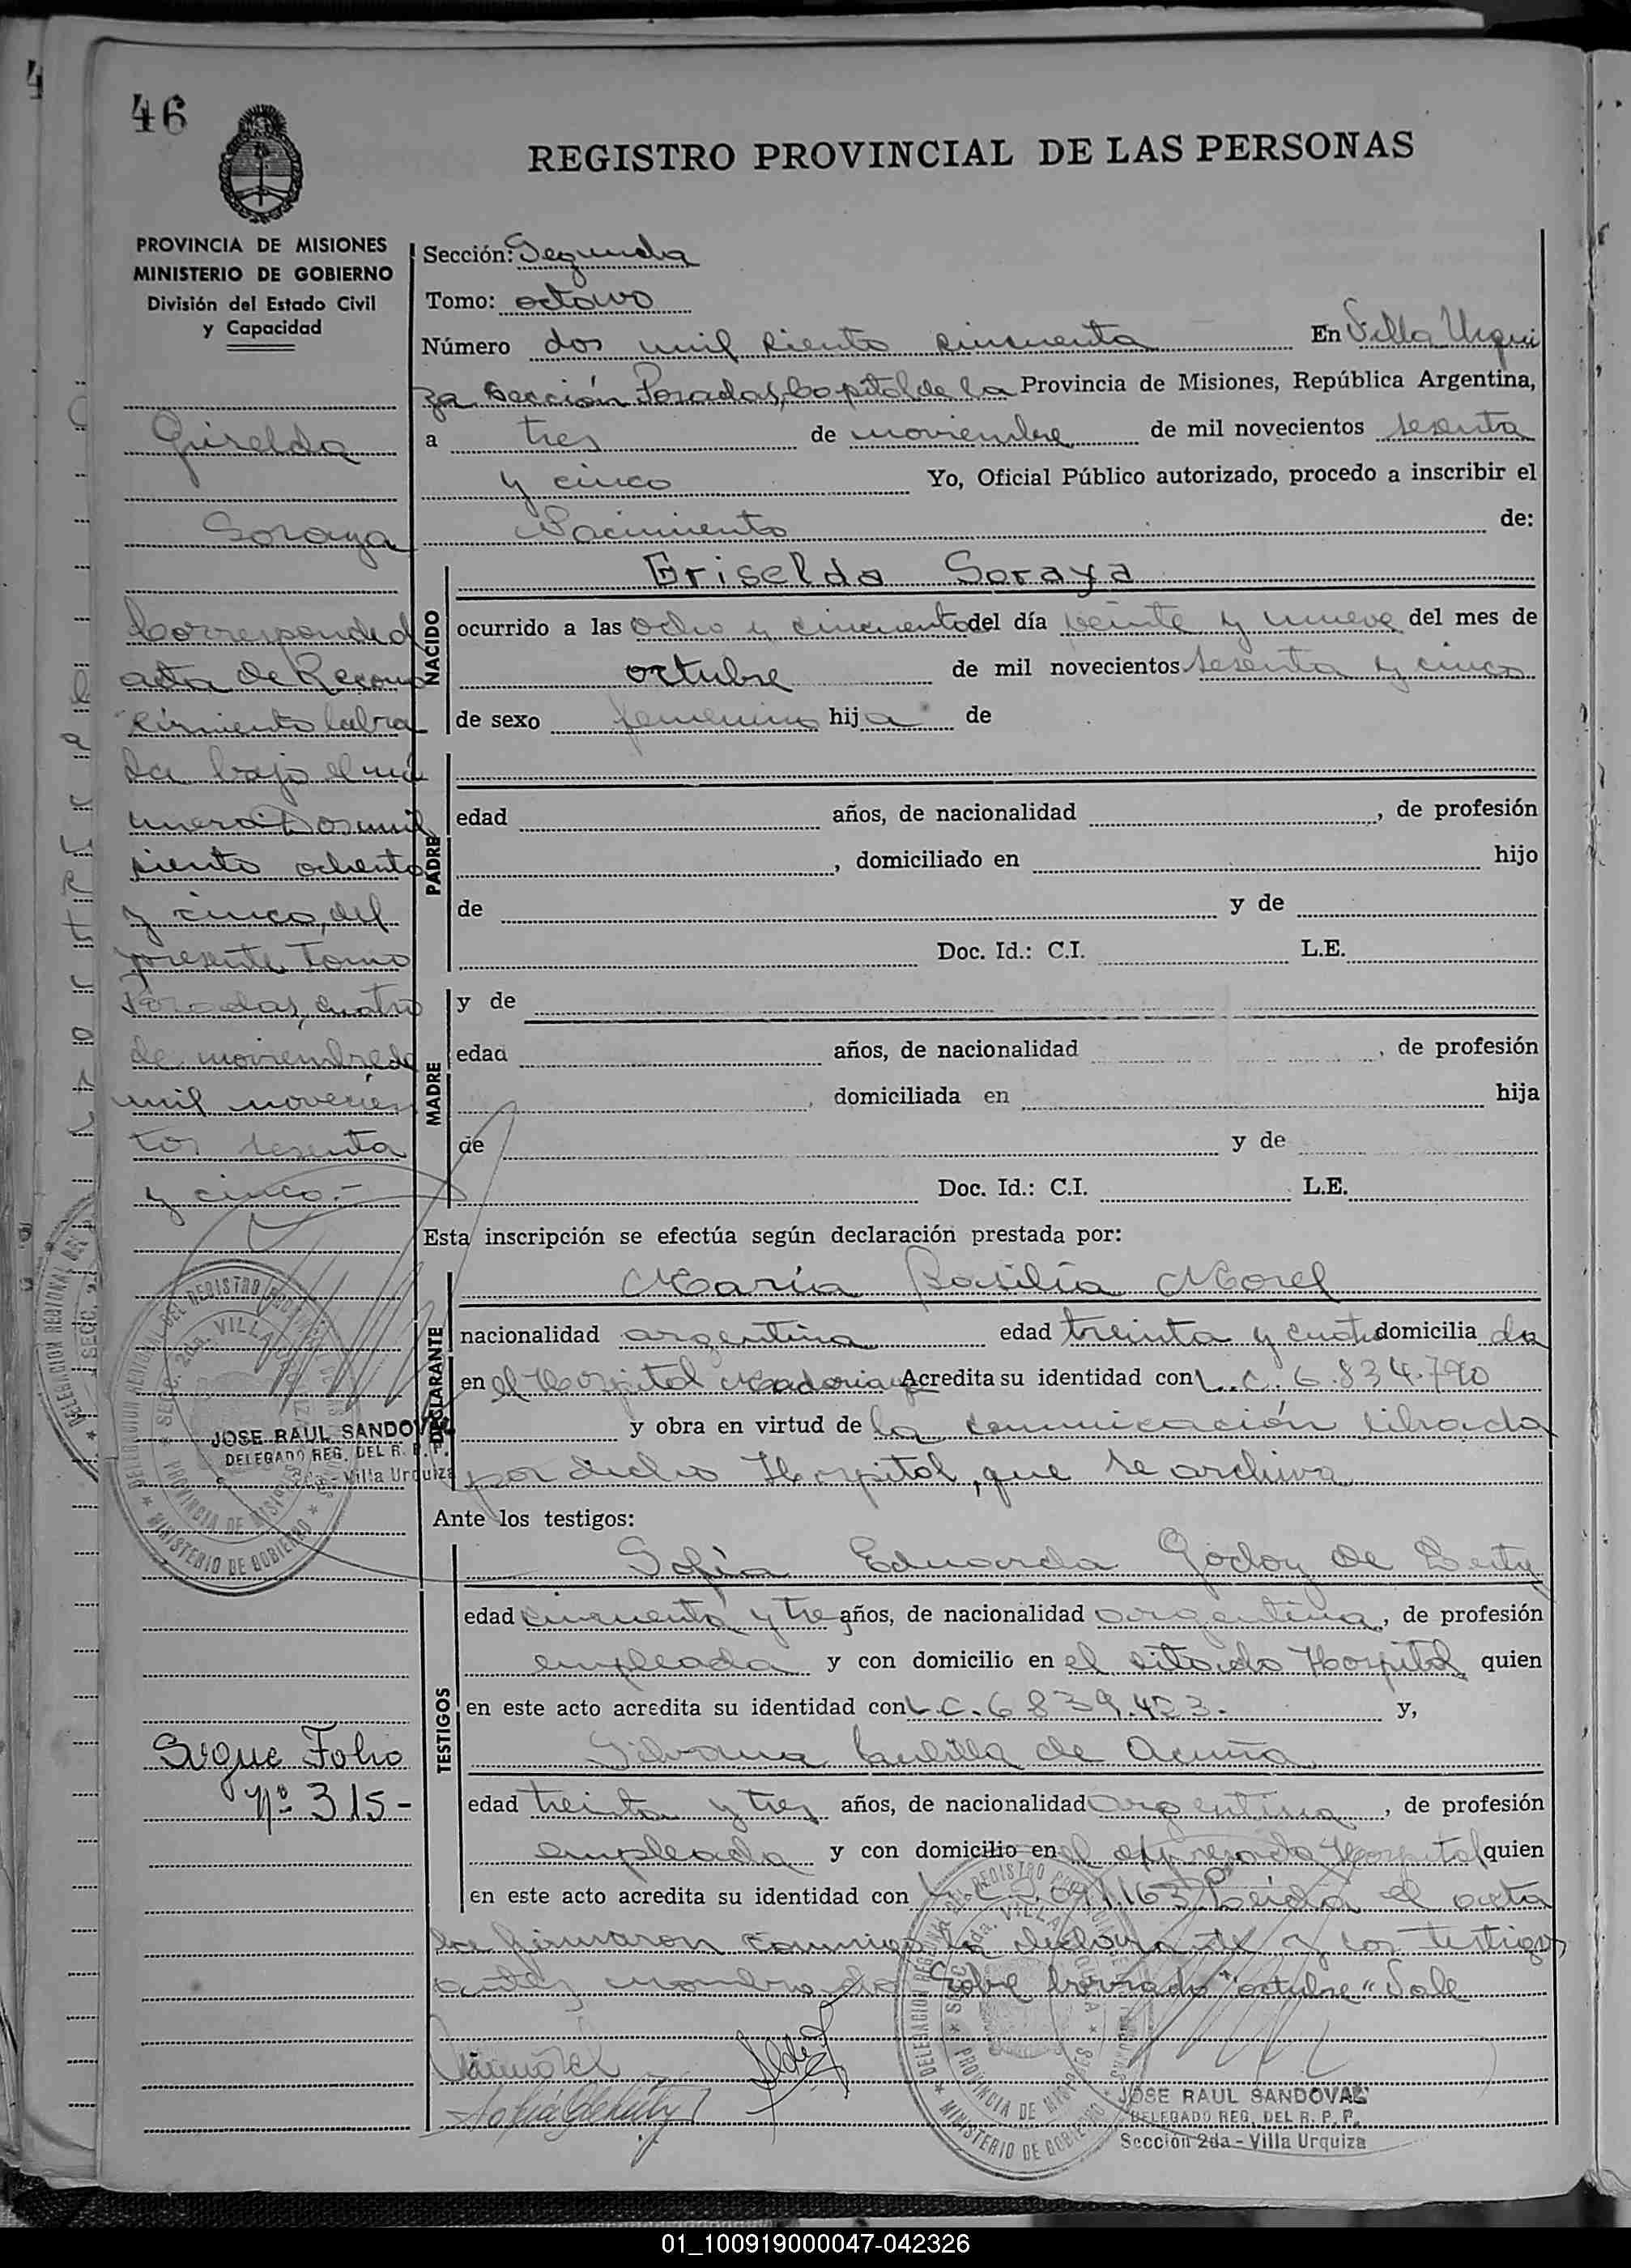 46
REGISTRO PROVINCIAL DE LAS PERSONAS
PROVINCIA DE MISIONES
MINISTERIO DE GOBIERNO
División del Estado Civil
y Capacidad
Griselda
Soraya
Corresponded
acta de Recono
cimiento labra
da bajo el nú
mero Dos mil
ciento ochenta
y cinco, del
presente Tomo
Posadas, cuatro
de noviembre de
mil novecien
tos sesenta
y cinco.-
JOSE RAUL SANDOVAL
DELEGADO REG. DEL R. P. P.
2da - Villa Urquiza
Sigue Folio
nº 315-
Sección: Segunda
Tomo: octavo
Número dos mil ciento cincuenta En Villa Urqui
za Sección Posadas, Capital de la Provincia de Misiones, República Argentina,
a tres de noviembre de mil novecientos sesenta
y cinco Yo, Oficial Público autorizado, procedo a inscribir el
Nacimiento de:
NACIDO
Griselda Soraya
ocurrido a las ocho y cincuenta del día veinte y nueve del mes de
octubre de mil novecientos sesenta y cinco
de sexo femenino hija de
PADRE
edad años, de nacionalidad , de profesión
, domiciliado en hijo
de y de
Doc. Id.: C.I. L.E.
MADRE
y de
edad años, de nacionalidad , de profesión
, domiciliada en hija
de y de
Doc. Id.: C.I. L.E.
Esta inscripción se efectúa según declaración prestada por:
DECLARANTE
María Basilia Morel
nacionalidad argentina edad treinta y cuatro domicilia da
en el Hospital Madariaga Acredita su identidad con L.C. 6.834.790
y obra en virtud de la comunicación librada
por dicho Hospital, que se archiva
Ante los testigos:
TESTIGOS
Sofía Eduarda Godoy de
edad cincuenta y tres años, de nacionalidad argentina, de profesión
empleada y con domicilio en el citado Hospital quien
en este acto acredita su identidad con L.C. 6839.453. y,
Silvana Cubilla de Acuña
edad treinta y tres años, de nacionalidad argentina, de profesión
empleada y con domicilio en el expresado Hospital quien
en este acto acredita su identidad con L.C. Leída el acta
la firmaron conmigo la declarante y los testigos
antes nombrados Sobre borrado "octubre" Vale
JOSE RAUL SANDOVAL
DELEGADO REG. DEL R. P. P.
Sección 2da - Villa Urquiza
01_100919000047-042326